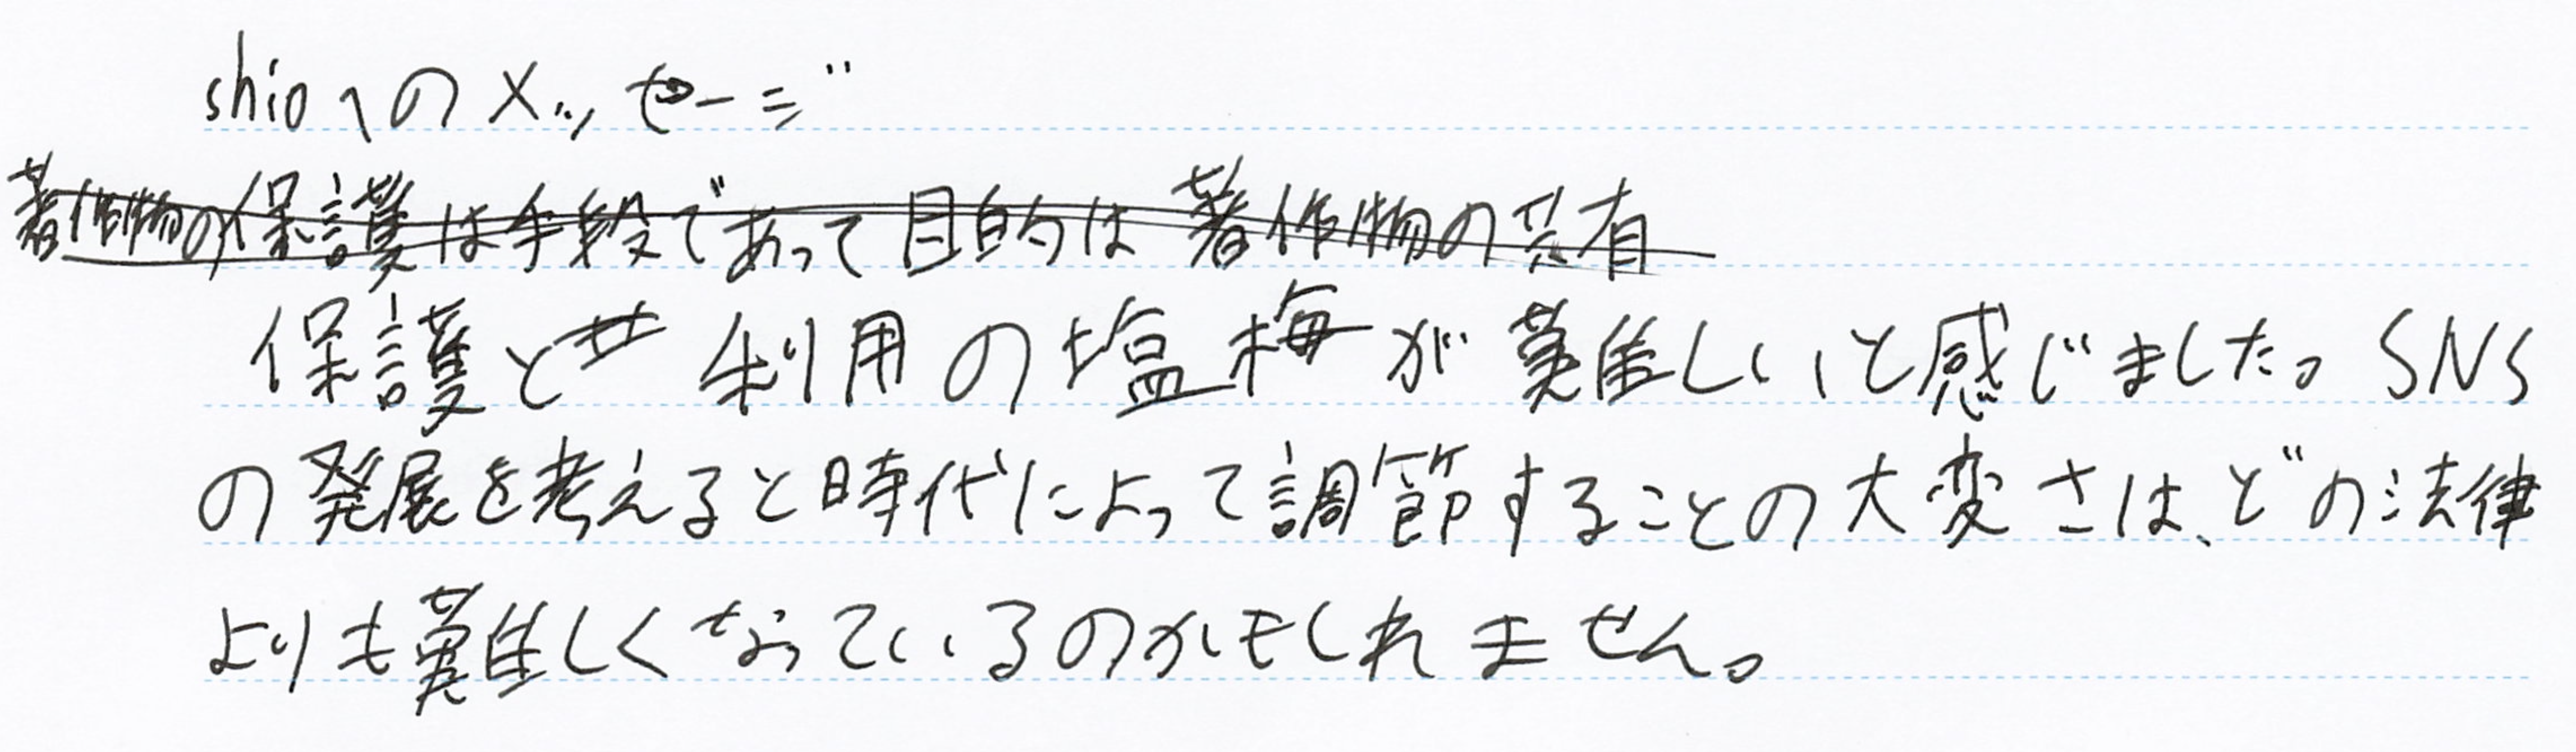 shioへのメッセージ
著作物の保護は手段であって目的は著作物の共有
保護と利用の塩梅が難しいと感じました。SNS
の発展を考えると時代によって調節することの大変さは、どの法律
よりも難しくなっているのかもしれません。